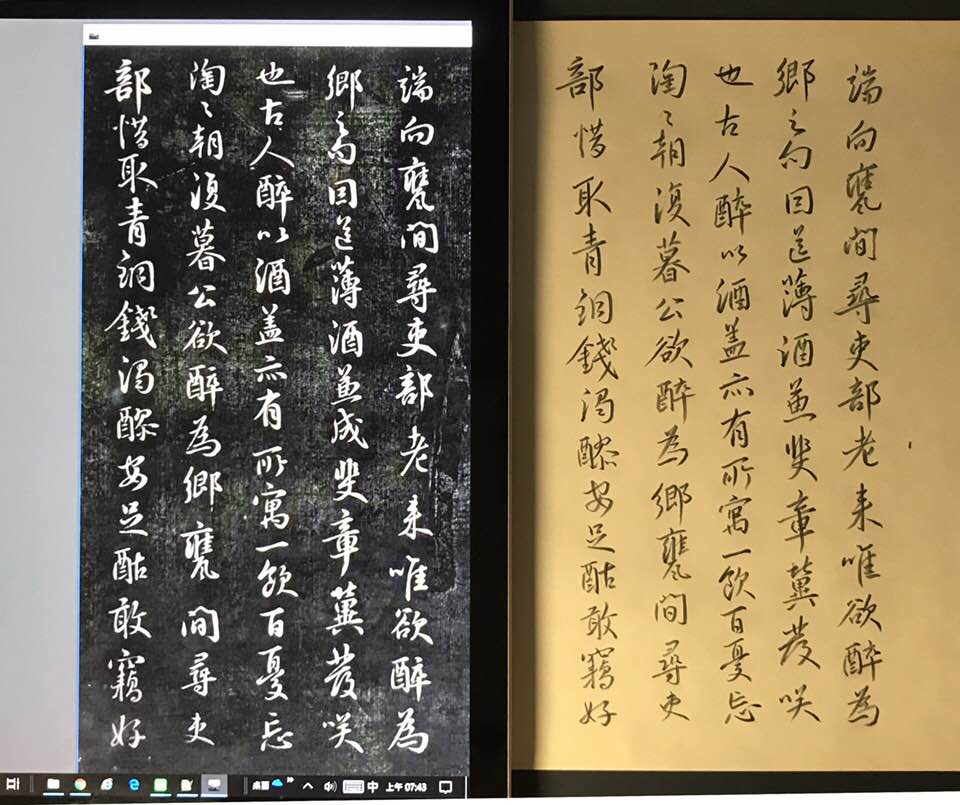 端向甕間尋吏部老来唯欲醉為
鄉之句因送薄酒兼成斐章冀發咲
也古人醉以酒盖亦有所寓一飲百憂忘
陶〻朝復暮公欲醉為鄉甕間尋吏
部惜取青銅錢渴醪安足酤敢竊好
桌面 » 中 上午 07:43
端向甕間尋吏部老来唯欲醉為
鄉之句因送薄酒兼斐章冀發咲
也古人醉以酒盖亦有所寓一飲百憂忘
陶〻朝復暮公欲醉為鄉甕間尋吏
部惜取青銅錢渴醪安足酤敢竊好